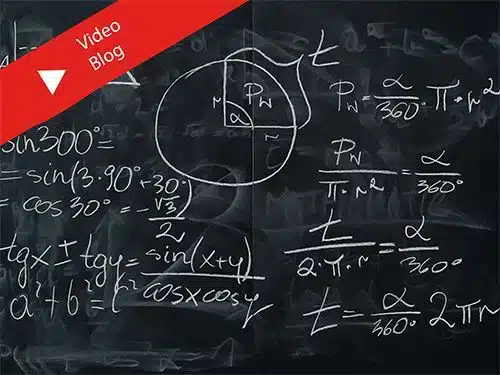 Video
Blog
t
P_w
r
α
r
sin300°=
=sin(3·90°+30°)
=cos30°=-√3/2
tgx±tgy=sin(x+y)/cosxcosy
a²+b²=c²
P_w=α/360°·π·r²
P_w/π·r²=α/360°
t/2·π·r=α/360°
t=α/360°2πr